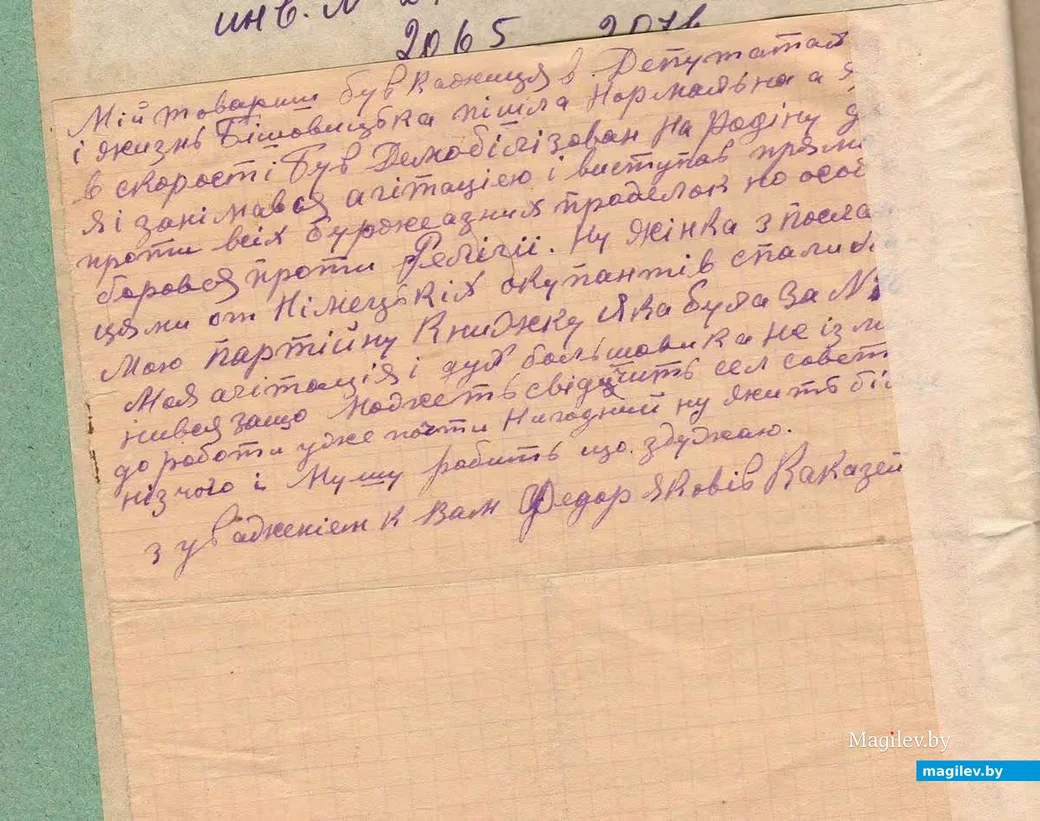 инв. №
2065 2076
Мій товариш був в Депутатах
і жизнь пішла Нормальна а я
в скорості Був Демобілізован на Родіну
я і занімався агітацією і виступав прями
проти всіх буржеазних проделок но особ
боровся проти Релігії. Ну жінка з посла
цями от Німецькіх окупантів спалил
мою партійну Книжку яка була за №
Моя агітація і дух большовика не ізм
нився защо можеть свідчить сел совет
до роботи уже почти Нигодний ну жить біл
нізчого і Мушу робить що здужаю.
з уваженіем к Вам Федор Яковів Каказей
Magilev.by
magilev.by